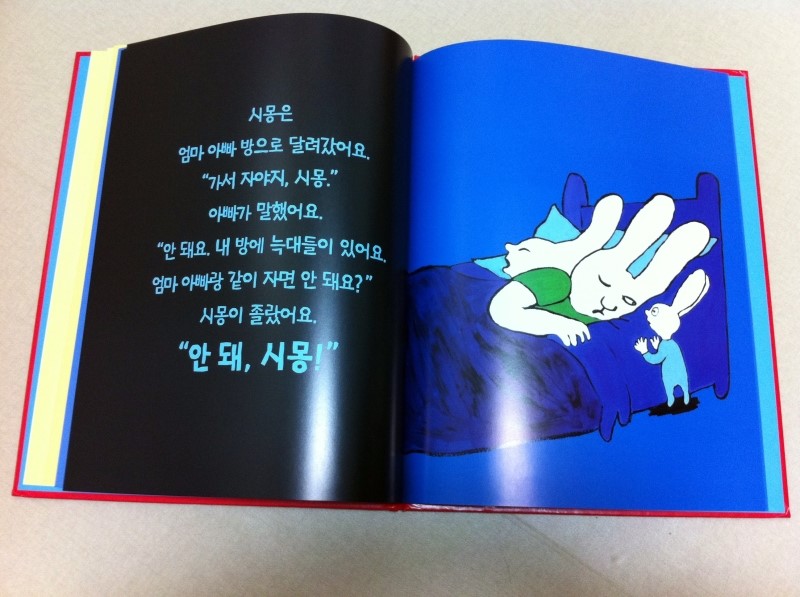 시몽은
엄마 아빠 방으로 달려갔어요.
“가서 자야지, 시몽.”
아빠가 말했어요.
“안 돼요. 내 방에 늑대들이 있어요.
엄마 아빠랑 같이 자면 안 돼요?”
시몽이 졸랐어요.
“안 돼, 시몽!”